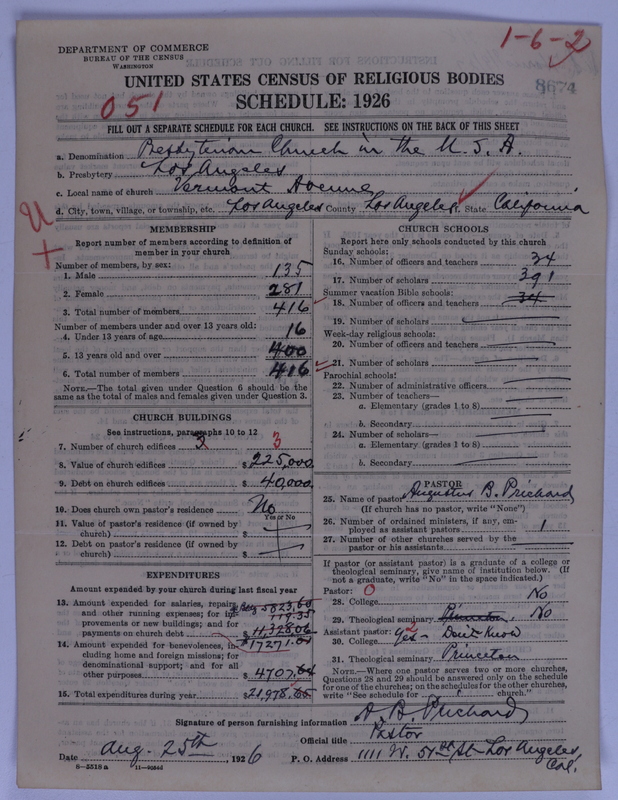 1-6-2
DEPARTMENT OF COMMERCE
BUREAU OF THE CENSUS
WASHINGTON
8674
UNITED STATES CENSUS OF RELIGIOUS BODIES
051
SCHEDULE: 1926
FILL OUT A SEPARATE SCHEDULE FOR EACH CHURCH. SEE INSTRUCTIONS ON THE BACK OF THIS SHEET
a. Denomination Presbyterian Church in the U.S.A.
b. Presbytery Los Angeles
c. Local name of church Vermont Avenue
d. City, town, village, or township, etc. Los Angeles County Los Angeles, State California
U
+
MEMBERSHIP
Report number of members according to definition of
member in your church
Number of members, by sex:
1. Male 135
2. Female 281
3. Total number of members 416
Number of members under and over 13 years old:
4. Under 13 years of age 16
5. 13 years old and over 400
6. Total number of members 416
NOTE.—The total given under Question 6 should be the
same as the total of males and females given under Question 3.
CHURCH BUILDINGS
See instructions, paragraphs 10 to 12
7. Number of church edifices 3 3
8. Value of church edifices $225,000
9. Debt on church edifices $40,000
10. Does church own pastor's residence? No
Yes or No
11. Value of pastor's residence (if owned by
church) $
12. Debt on pastor's residence (if owned by
church) $
EXPENDITURES
Amount expended by your church during last fiscal year
13. Amount expended for salaries, repairs, 5823.60
and other running expenses; for im- 119.35
provements or new buildings; and for
payments on church debt $11,328.06
$17271.01
14. Amount expended for benevolences, in-
cluding home and foreign missions; for
denominational support; and for all
other purposes $4707.64
15. Total expenditures during year $21,978.65
CHURCH SCHOOLS
Report here only schools conducted by this church
Sunday schools:
16. Number of officers and teachers 34
17. Number of scholars 391
Summer vacation Bible schools:
18. Number of officers and teachers 34
19. Number of scholars
Week-day religious schools:
20. Number of officers and teachers
21. Number of scholars
Parochial schools:
22. Number of administrative officers
23. Number of teachers—
a. Elementary (grades 1 to 8)
b. Secondary
24. Number of scholars—
a. Elementary (grades 1 to 8)
b. Secondary
PASTOR
25. Name of pastor Augustus B. Prichard
(If church has no pastor, write "None")
26. Number of ordained ministers, if any, em-
ployed as assistant pastors 1
27. Number of other churches served by the
pastor or his assistants
If pastor (or assistant pastor) is a graduate of a college or
theological seminary, give name of institution below. (If
not a graduate, write "No" in the space indicated.)
Pastor: 0
28. College No
29. Theological seminary Princeton, No
Assistant pastor: 2
30. College Yes - Don't Know
31. Theological seminary Princeton
NOTE.—Where one pastor serves two or more churches,
Questions 28 and 29 should be answered only on the schedule
for one of the churches; on the schedules for the other churches,
write "See schedule for church."
Signature of person furnishing information A. B. Prichard
Official title Pastor
Date Aug. 25th, 1926 P. O. Address 1111 W. 51st St. Los Angeles,
Cal.
8-3518a